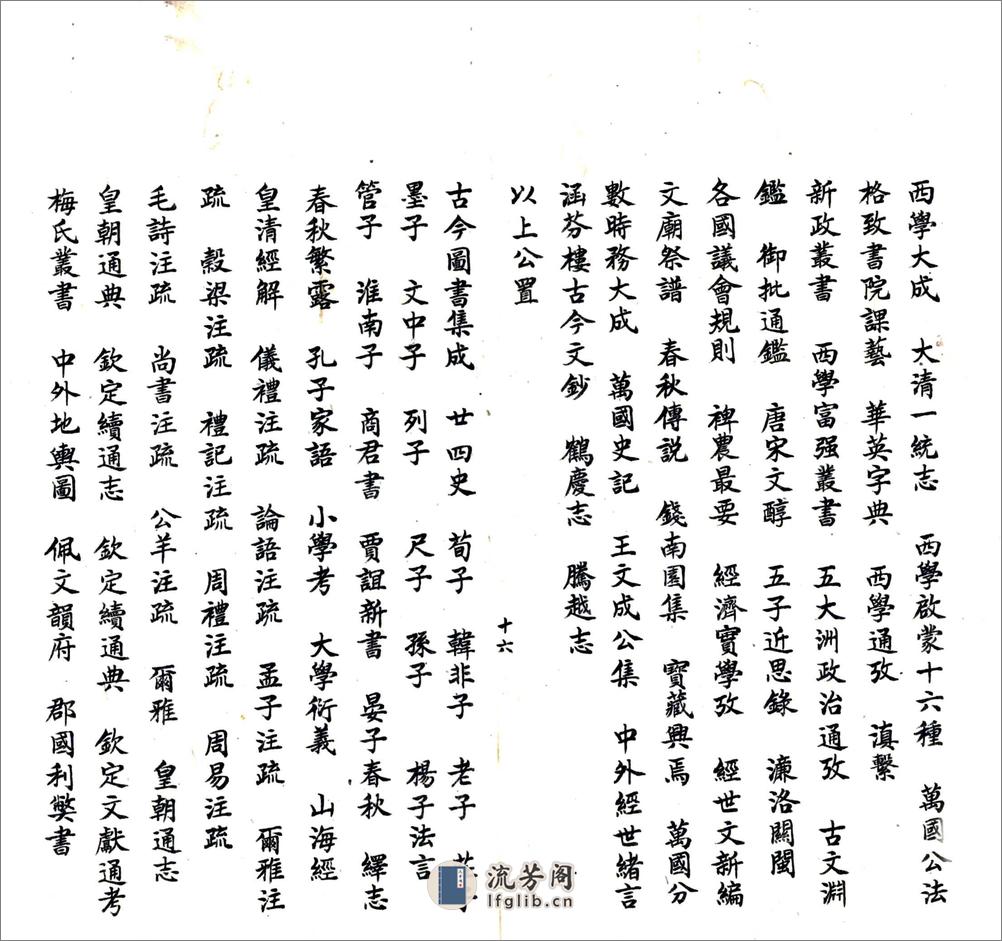 西學大成 大清一統志 西學啟蒙十六種 萬國公法
格致書院課藝 華英字典 西學通攷 滇繫
新政叢書 西學富强叢書 五大洲政治通攷 古文淵
鑑 御批通鑑 唐宋文醇 五子近思錄 濂洛關閩
各國議會規則 裨農最要 經濟實學攷 經世文新編
文廟祭譜 春秋傳說 錢南園集 寶藏興焉 萬國分
數時務大成 萬國史記 王文成公集 中外經世緒言
涵芬樓古今文鈔 鶴慶志 騰越志
以上公置
十六
古今圖書集成 廿四史 荀子 韓非子 老子
墨子 文中子 列子 尺子 孫子 楊子法言
管子 淮南子 商君書 賈誼新書 晏子春秋 繹志
春秋繁露 孔子家語 小學考 大學衍義 山海經
皇清經解 儀禮注疏 論語注疏 孟子注疏 爾雅注
疏 榖梁注疏 禮記注疏 周禮注疏 周易注疏
毛詩注疏 尚書注疏 公羊注疏 爾雅 皇朝通志
皇朝通典 欽定續通志 欽定續通典 欽定文獻通考
梅氏叢書 中外地輿圖 佩文韻府 郡國利獘書
流芳阁
lfglib.cn